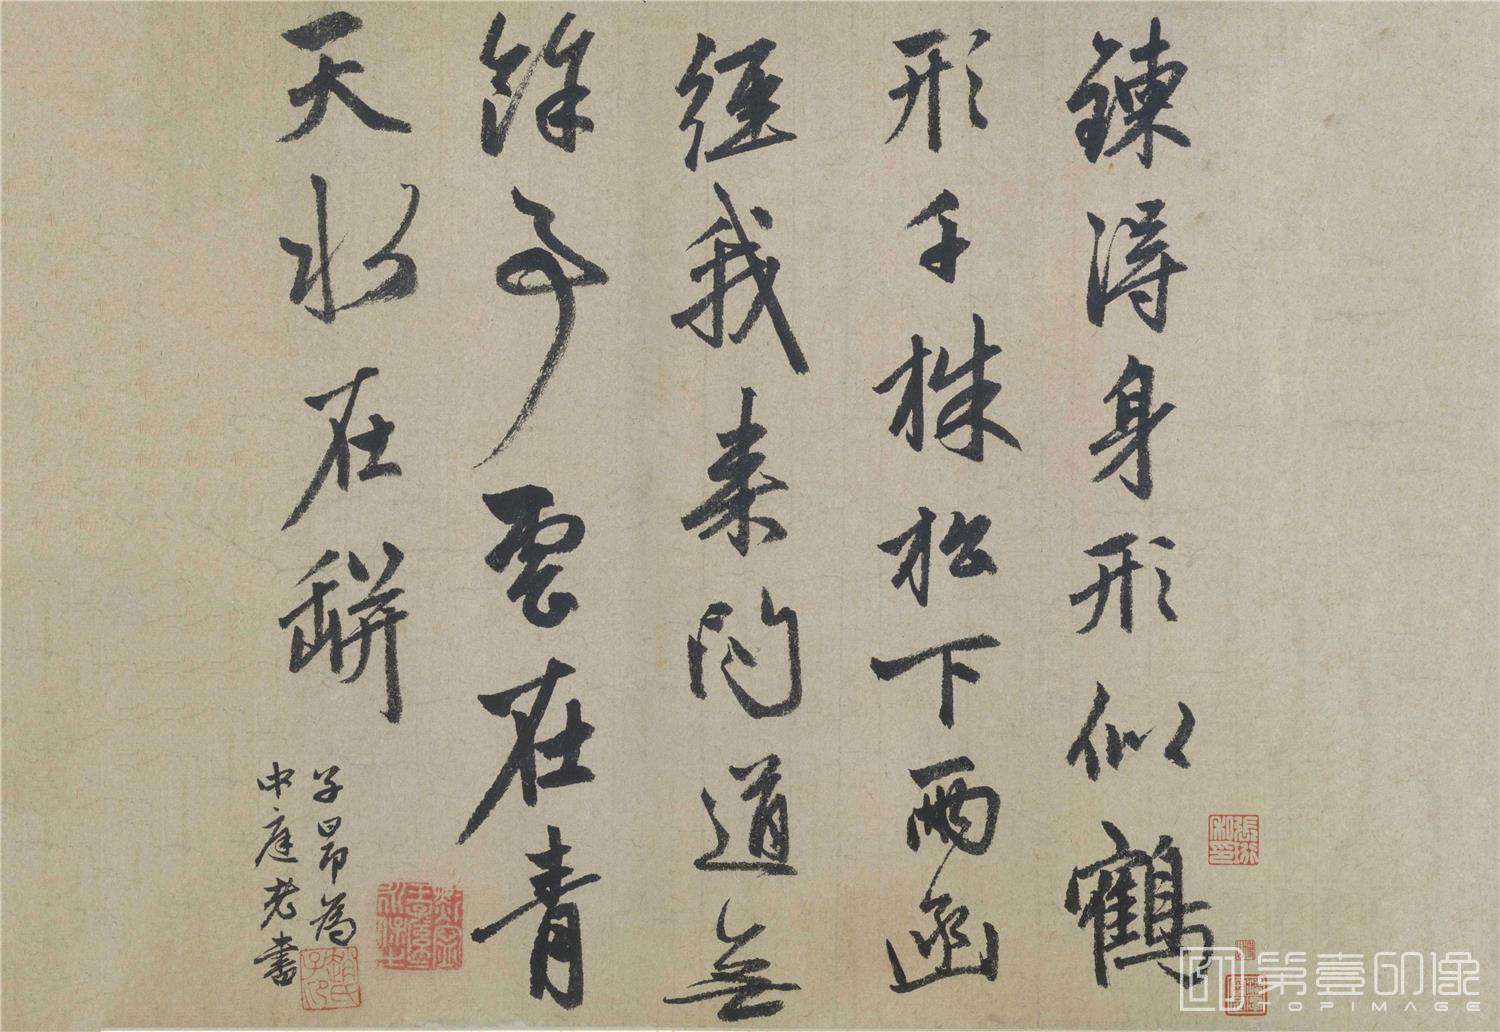 鍊得身形似鶴
形千株松下兩函
經我來問道無
餘事雲在青
天水在缾
子昂為
中庭老書
趙氏子昂
第壹印像
TOPIMAGE